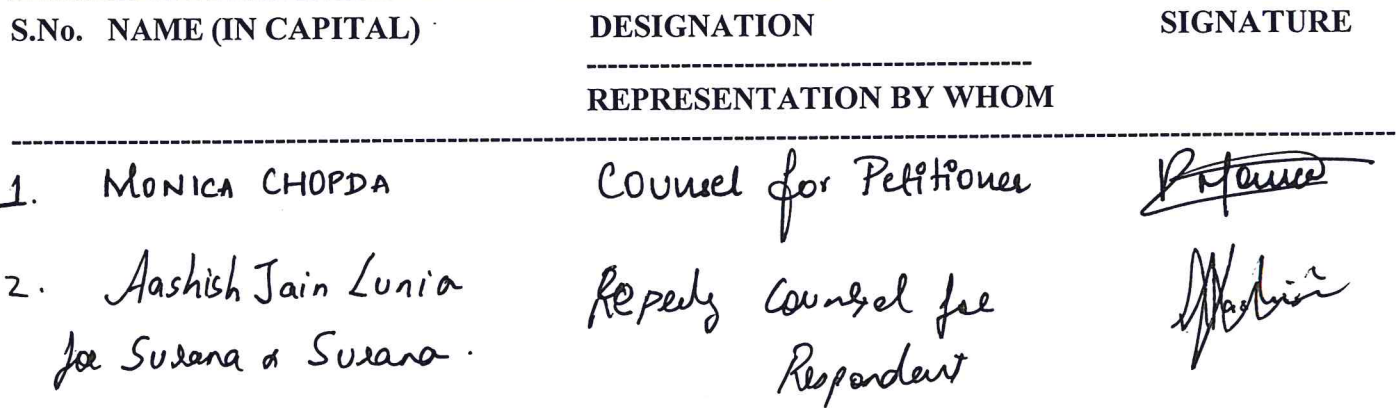 S.No. NAME (IN CAPITAL) DESIGNATION SIGNATURE
REPRESENTATION BY WHOM
1. MONICA CHOPDA Counsel for Petitioner
2. Aashish Jain Lunia Counsel for
for Surana & Surana. Respondent